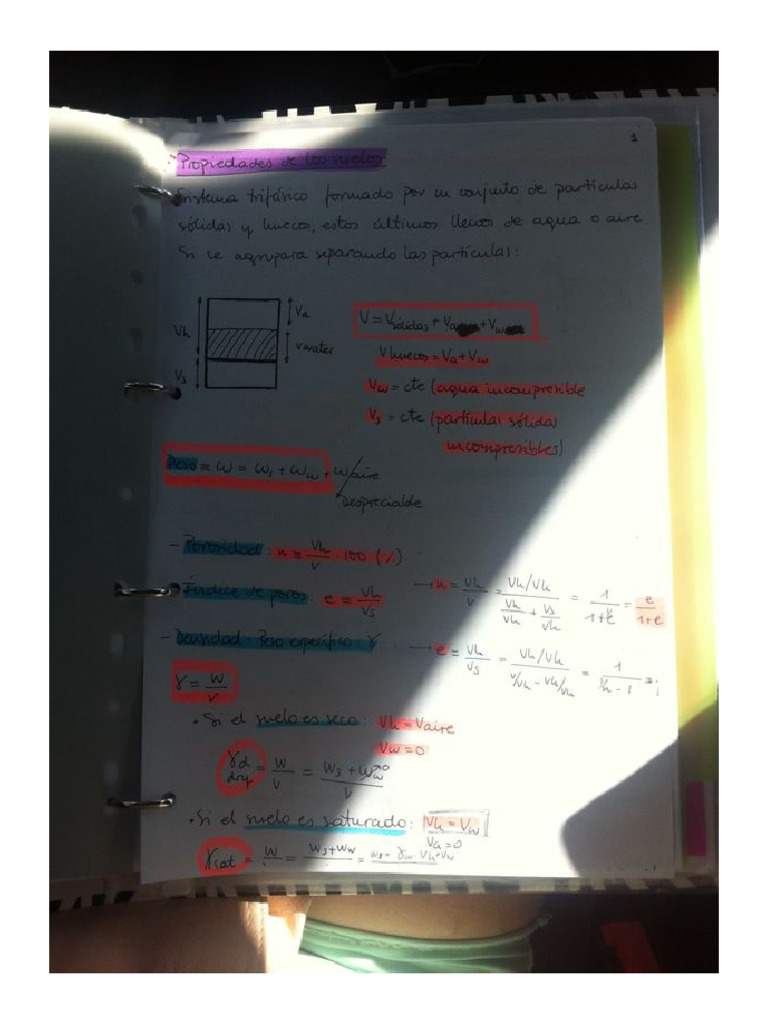 1
Propiedades de los suelos
Sistema trifásico formado por un conjunto de partículas
sólidas y huecos, estos últimos llenos de agua o aire
Si se agrupara separando las partículas:
Vh
Vs
Va
Vwater
V = Vsólidas + Va + Vw
Vhuecos = Va + Vw
Vw = cte (agua incompresible
Vs = cte (partículas sólidas
incompresibles)
Peso = W = Ws + Ww + Waire
Despreciable
- Porosidad: n = Vh/V · 100 (%)
- Índice de poros: e = Vh/Vs
→ n = Vh/V = (Vh/Vh)/(Vh/Vh + Vs/Vh) = 1/(1+1/e) = e/(1+e)
- Densidad - Peso específico: γ
→ e = Vh/Vs = (Vh/Vh)/(V/Vh - Vh/Vh) = 1/(1/n - 1)
γ = W/V
• Si el suelo es seco: Vh = Vaire
Vw = 0
γd dry = W/V = (Ws + Ww→0)/V
• Si el suelo es saturado: Vh = Vw
Va = 0
γsat = W = Ws + Ww =